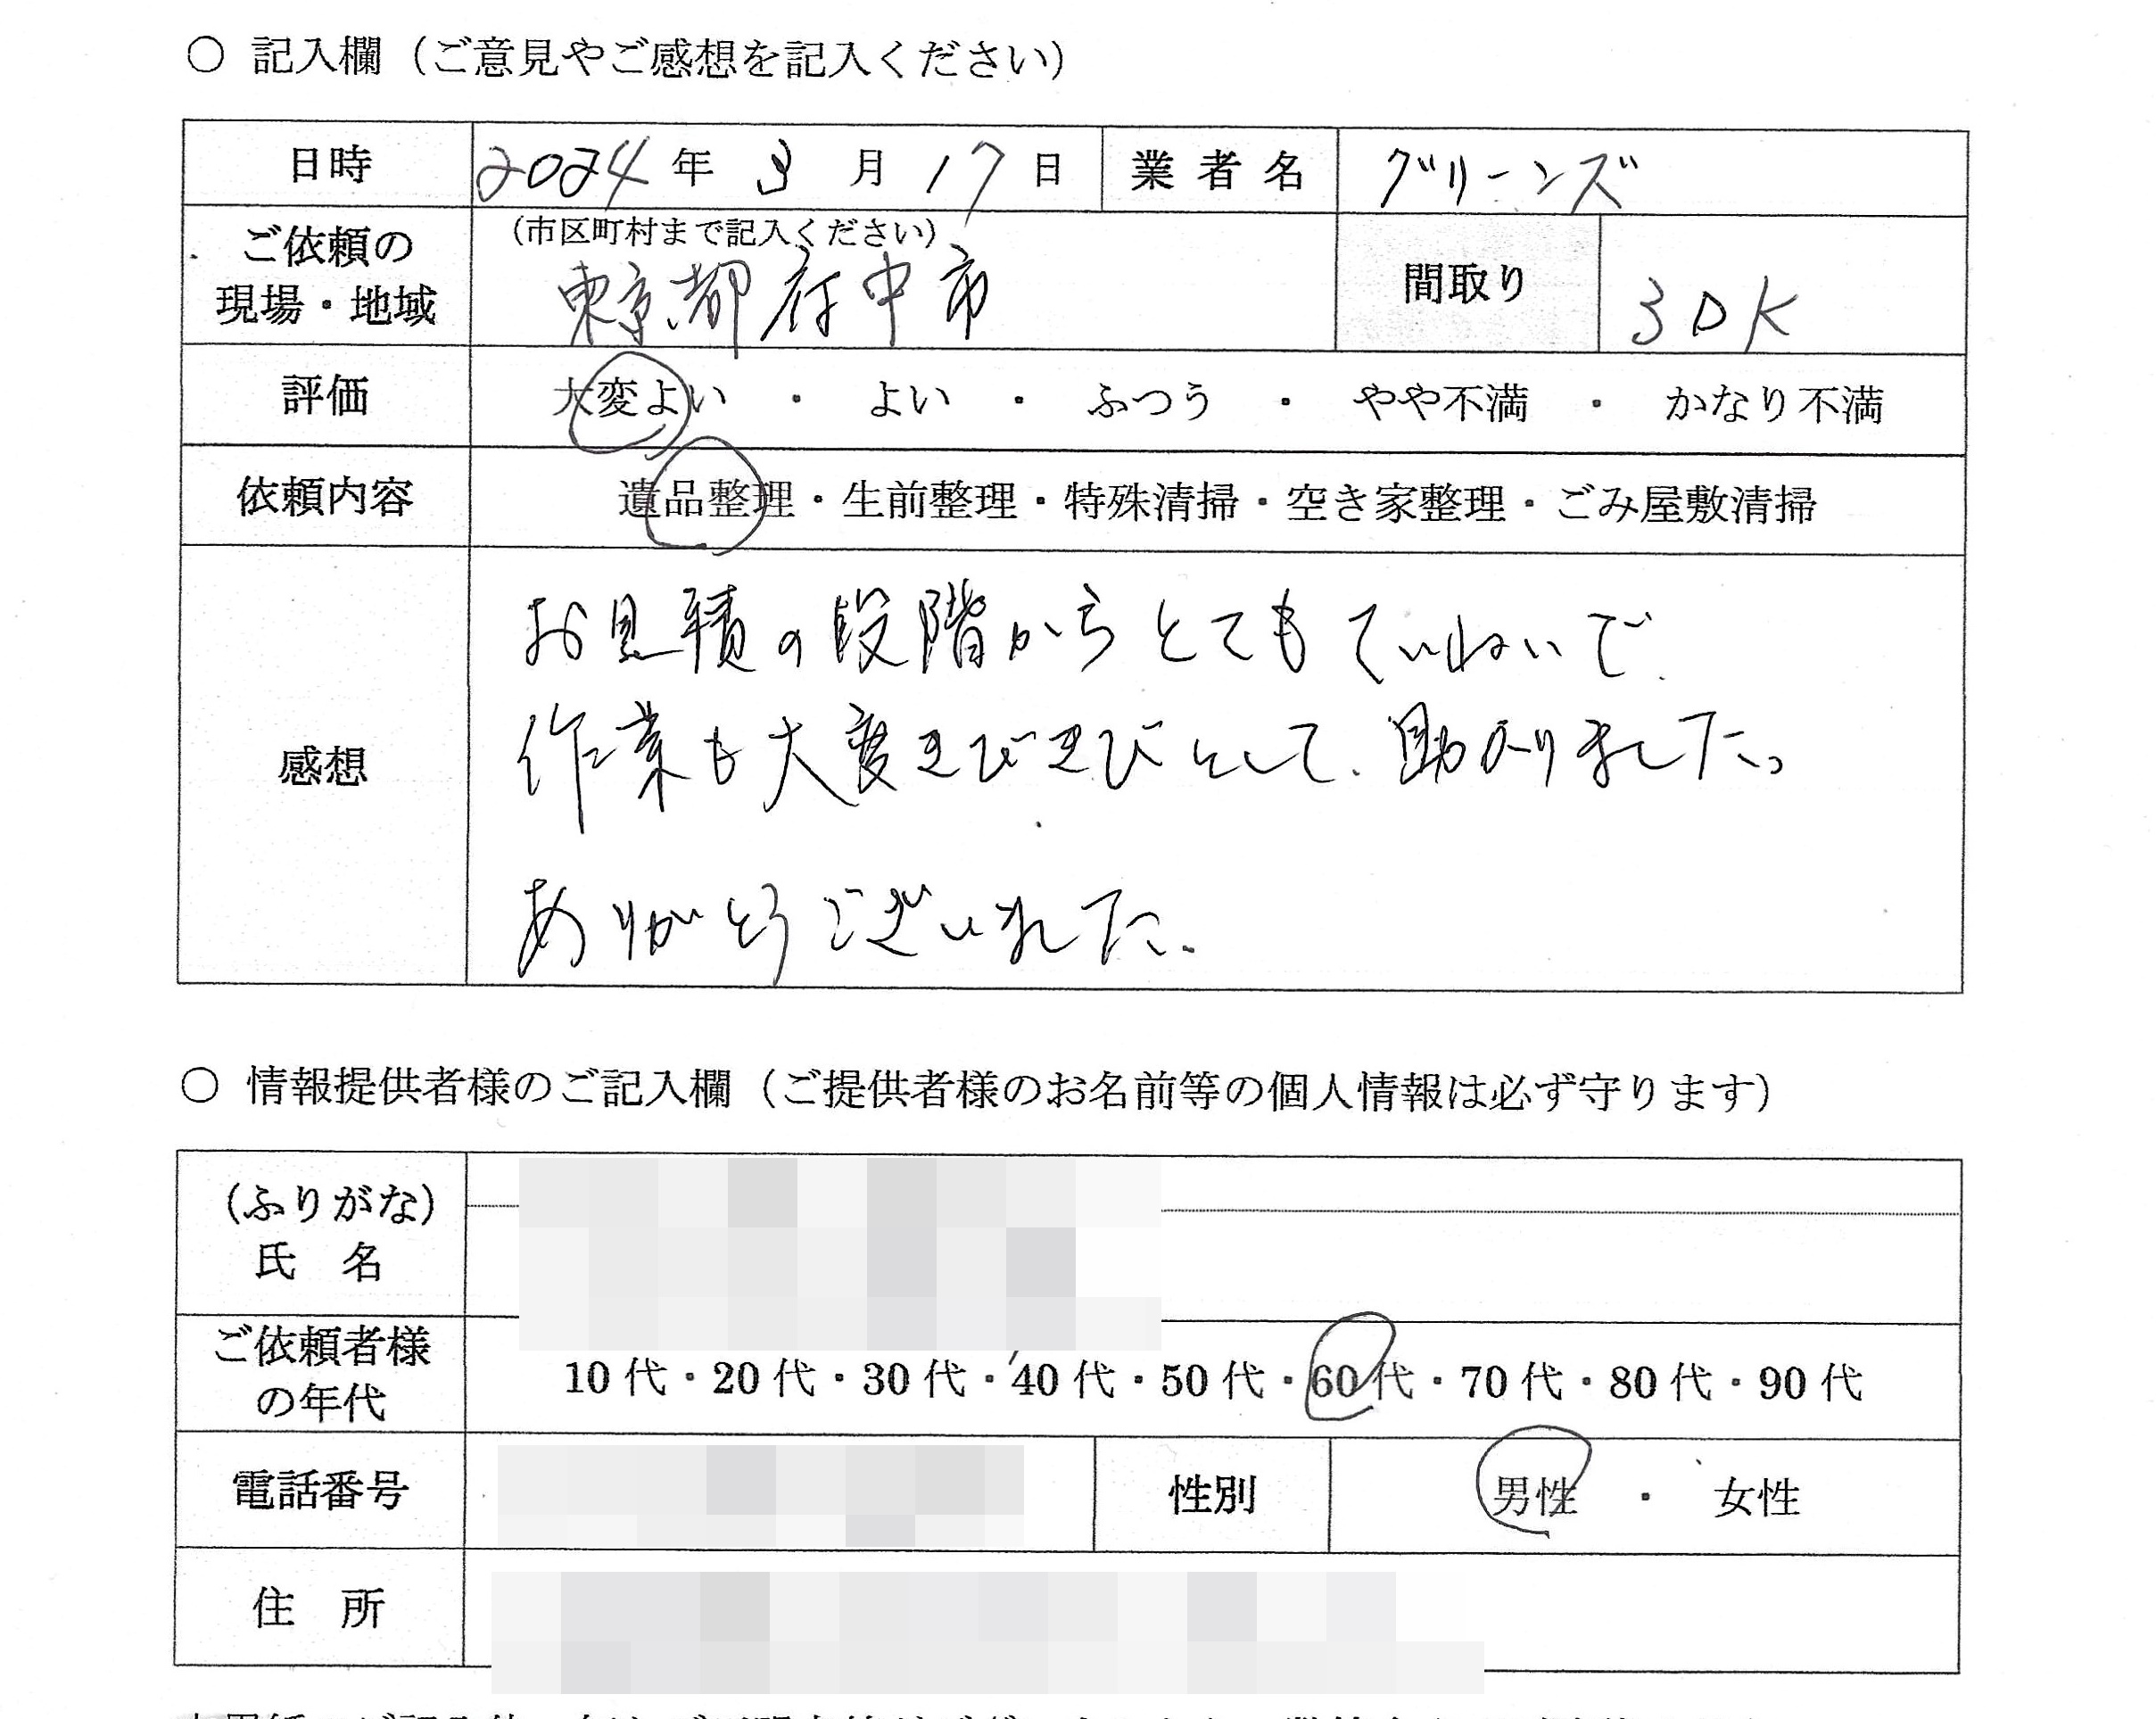 ○ 記入欄（ご意見やご感想を記入ください）
日時 2024年 3月 17日 業者名 グリーンズ
ご依頼の現場・地域 （市区町村まで記入ください）
東京都府中市 間取り 3DK
評価 大変よい ・ よい ・ ふつう ・ やや不満 ・ かなり不満
依頼内容 遺品整理・生前整理・特殊清掃・空き家整理・ごみ屋敷清掃
感想
お見積の段階からとてもていねいで
作業も大変きびきびとして、助かりました。
ありがとうございました。
○ 情報提供者様のご記入欄（ご提供者様のお名前等の個人情報は必ず守ります）
（ふりがな）
氏 名
ご依頼者様の年代 10代・20代・30代・40代・50代・60代・70代・80代・90代
電話番号 性別 男性 ・ 女性
住 所